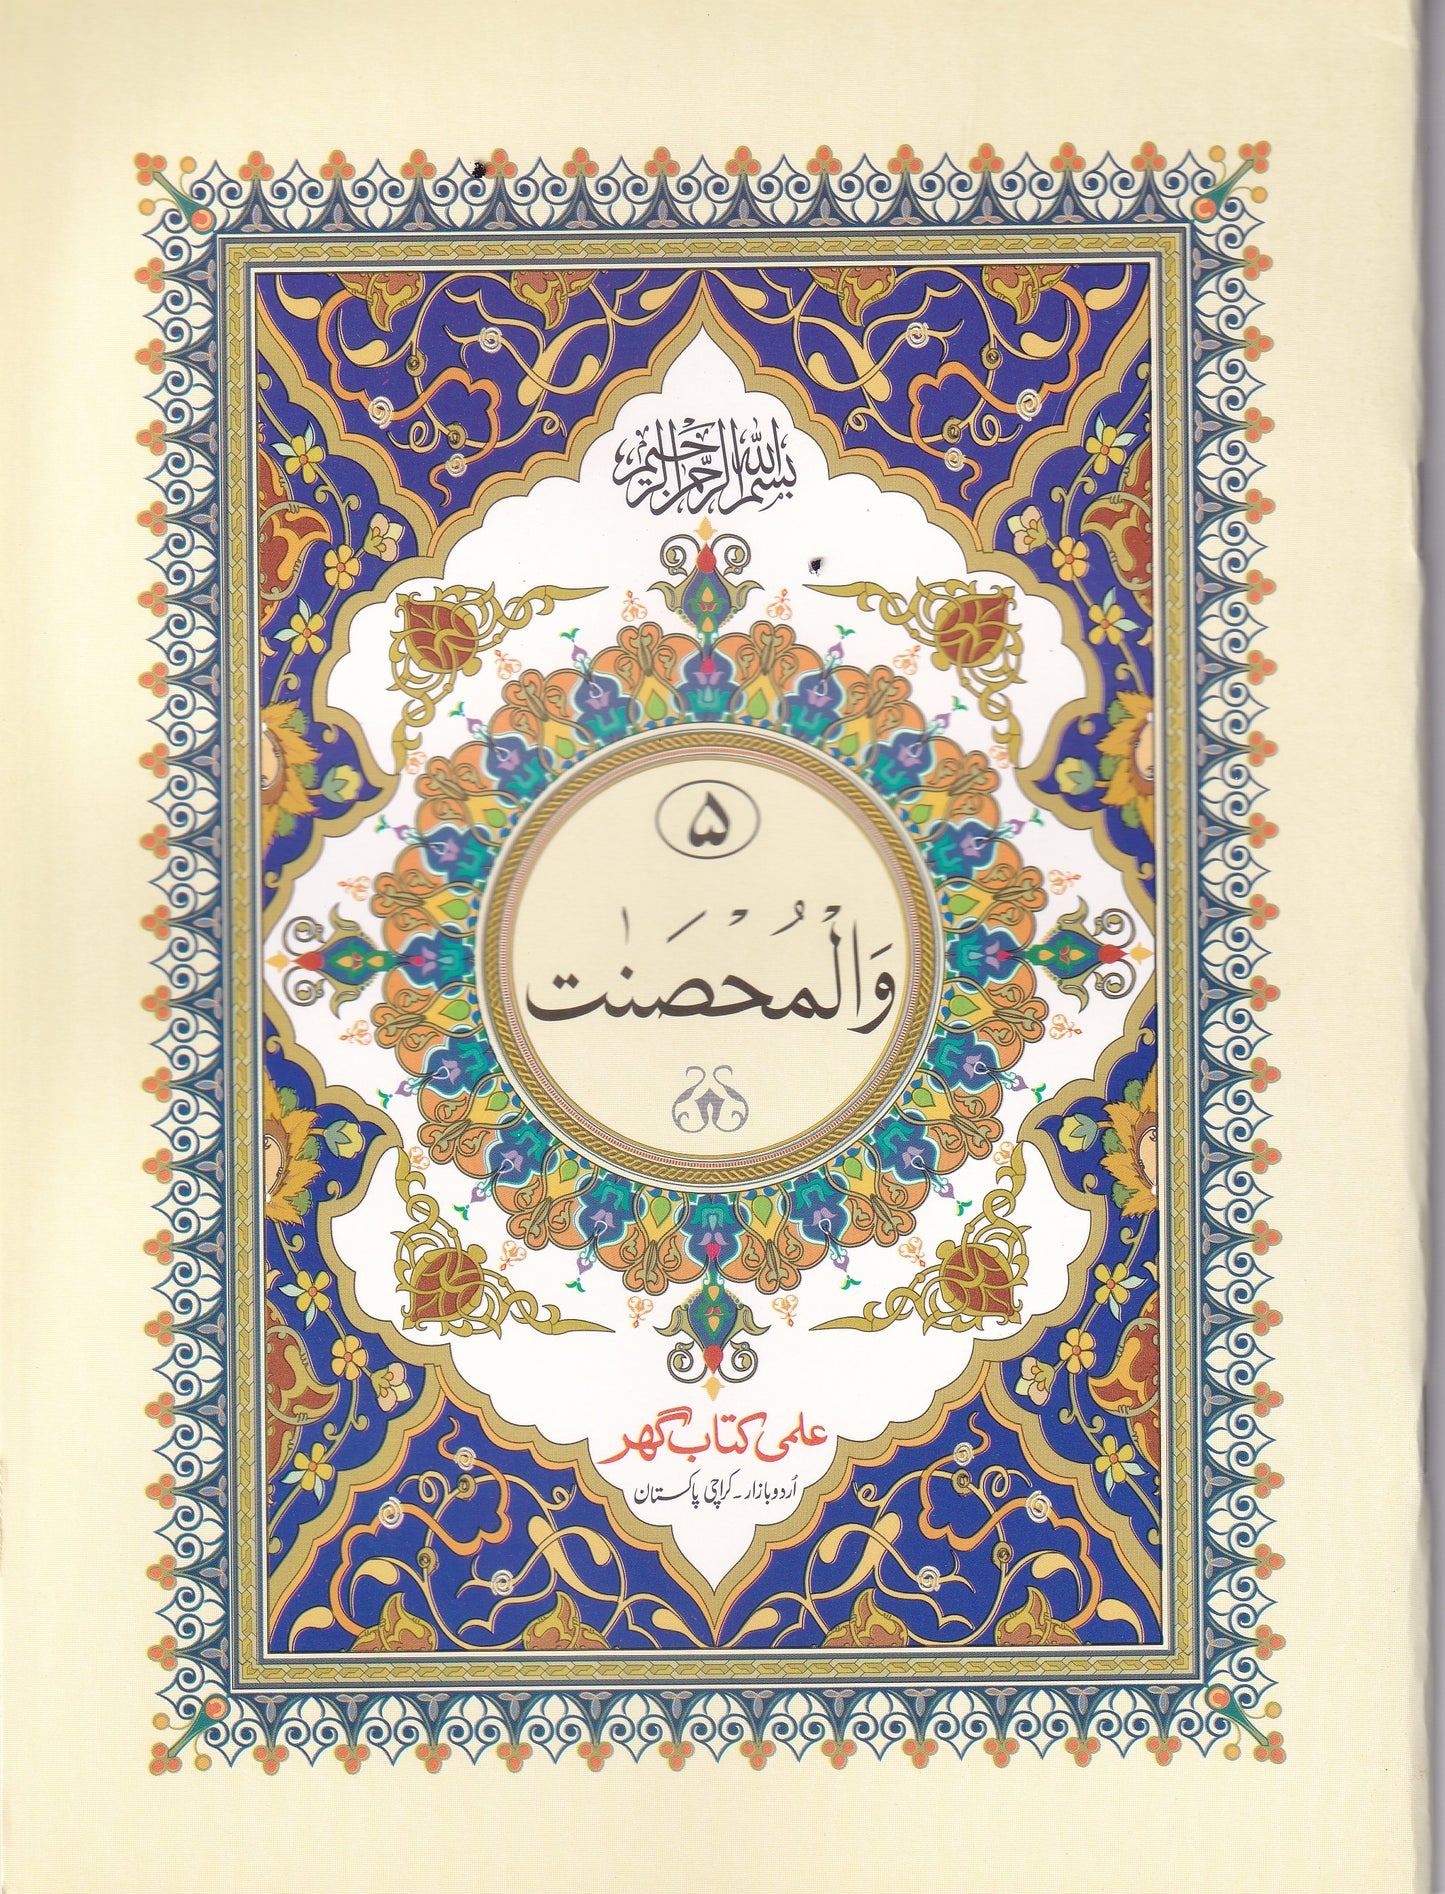 بسم الله الرحمن الرحيم
۵
وَالْمُحْصَنٰت
علمی کتاب گھر
اُردو بازار۔ کراچی پاکستان